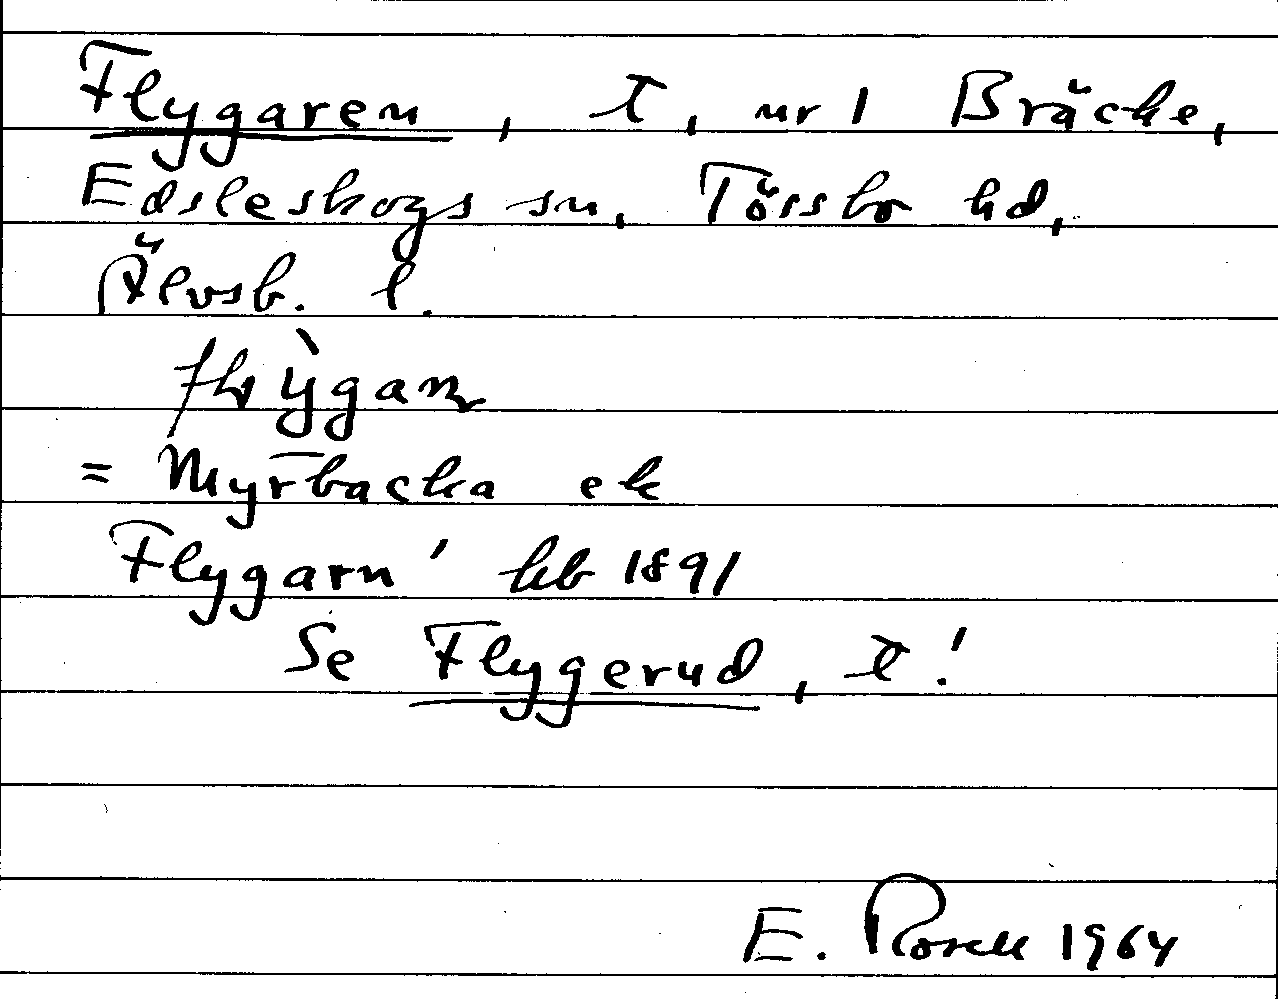 Flygaren, t, nr 1 Bräcke,
Edsleskogs sn, Tössbo hd,
Älvsb. l.
= Myrbacka ek
Flygarn' hb 1891
Se Flygerud, t!
E. Rosell 1964